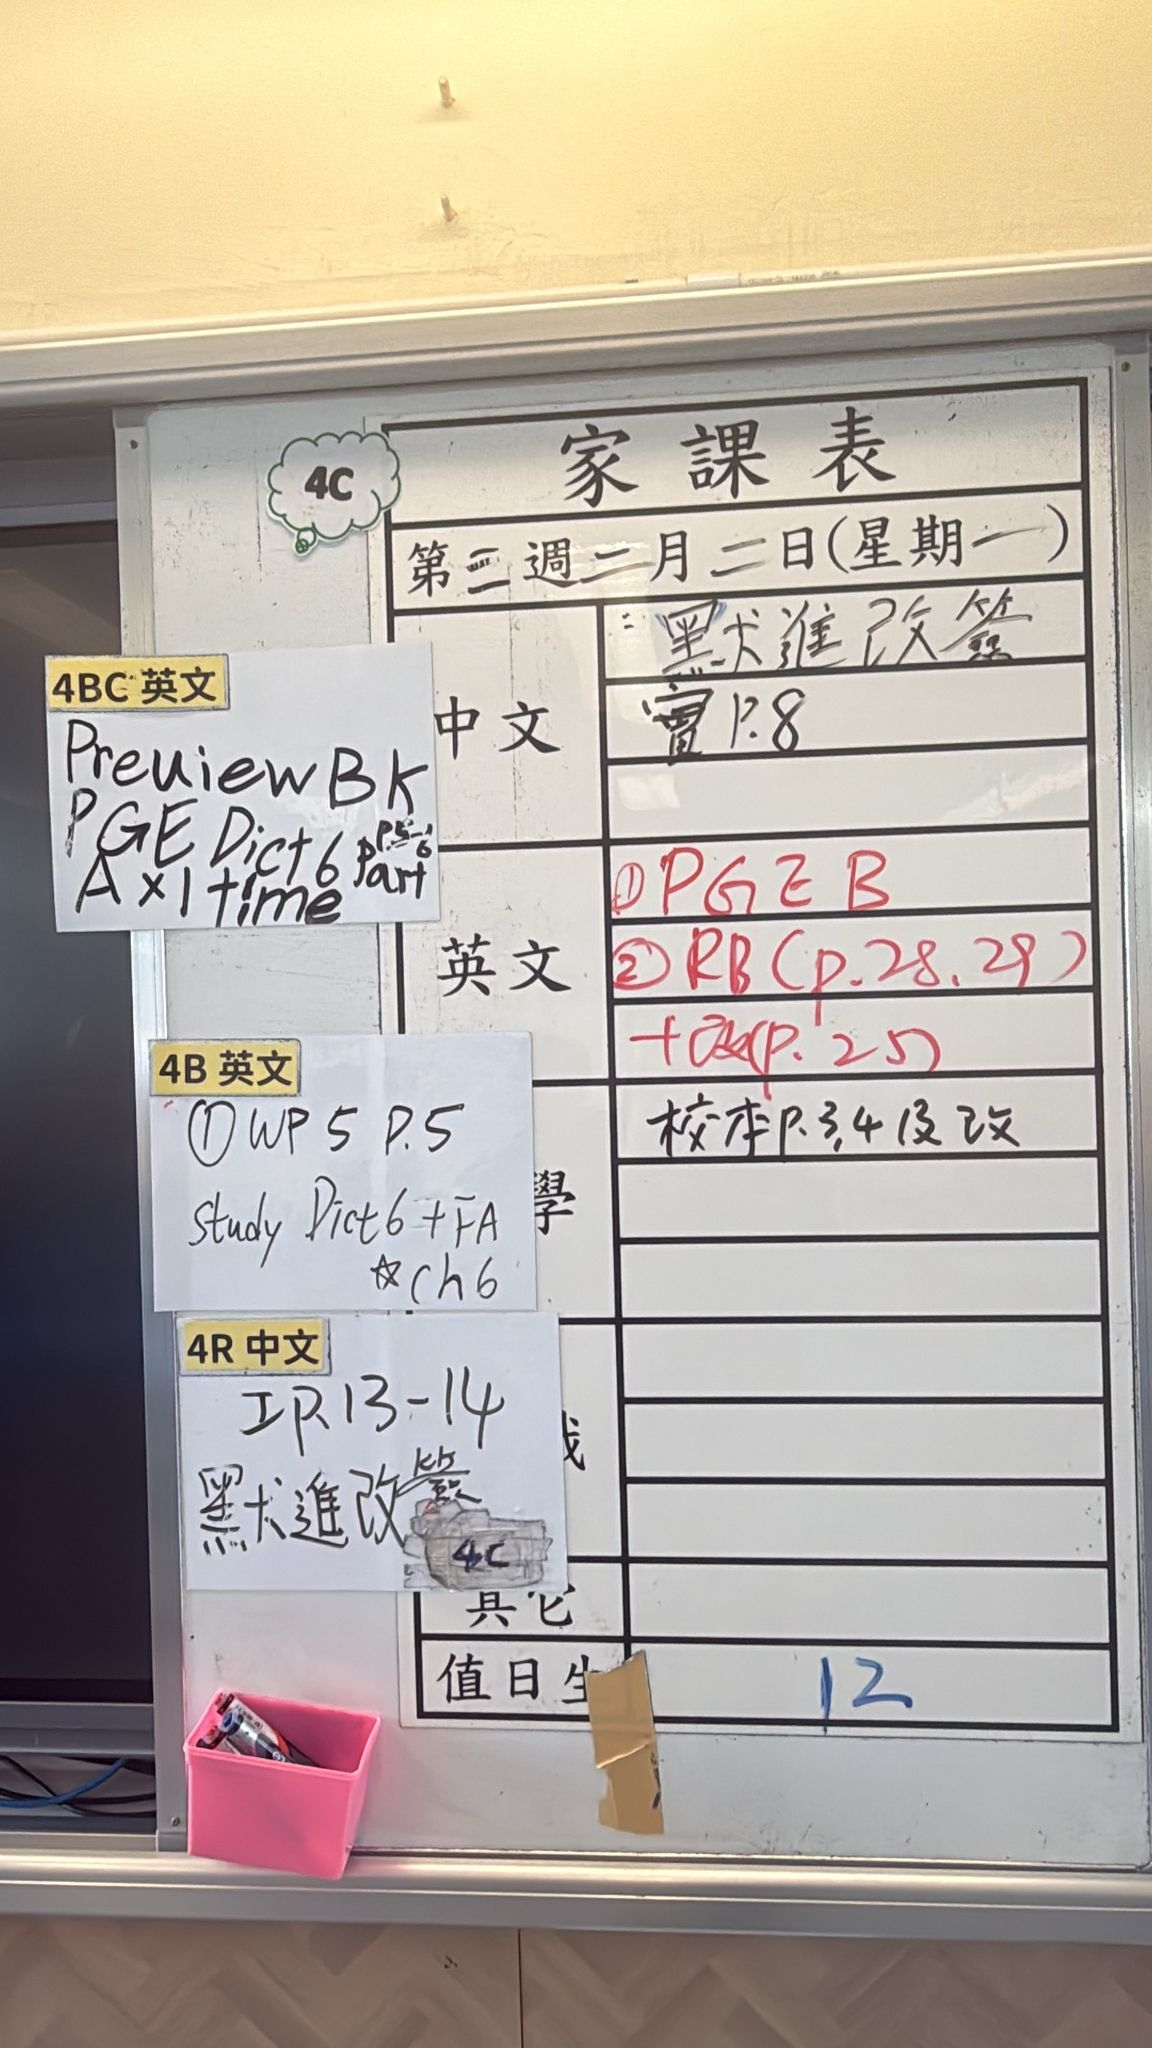 4C
家課表
第三週二月二日(星期一)
中文
默進改簽
P.8
英文
①PGEB
②RB(p.28.29)
+改(p.25)
學
校本P.3,4及改
其它
值日生
12
4BC 英文
Preview BK
PGE Dict 6 P.5-6
A x1 time Part
4B 英文
①WP 5 P.5
Study Dict 6 + FA
☆Ch 6
4R 中文
工P.13-14
默進改簽
4C